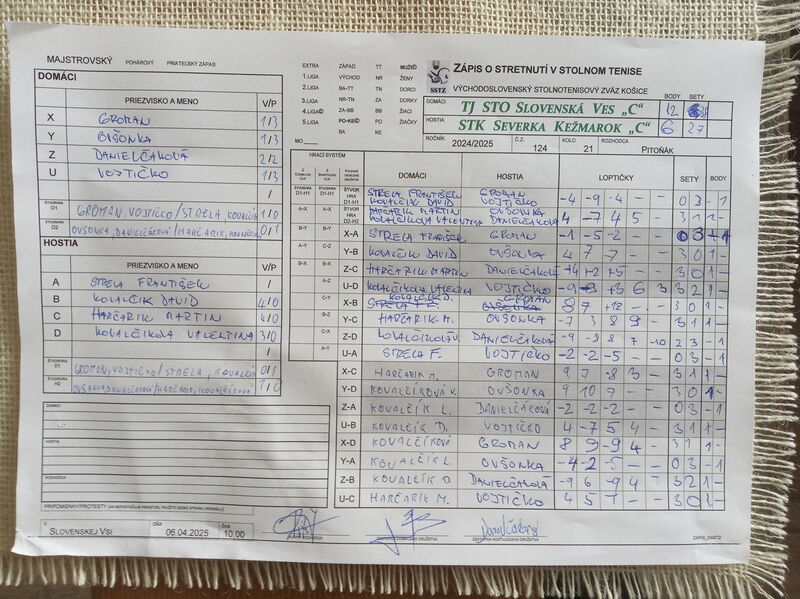 MAJSTROVSKÝ POHÁROVÝ PRIATEĽSKÝ ZÁPAS
DOMÁCI
PRIEZVISKO A MENO V/P
X GROMAN 1/3
Y OVŠONKA 1/3
Z DANIELČÁKOVÁ 2/2
U VOJTIČKO 1/3
ŠTVORHRA D1 GROMAN, VOJTIČKO/STRELA, KOVALČÍK 1/0
ŠTVORHRA D2 OVSONKA, DANIELČÁKOVÁ/HARČARIK, KOVALČÍKOVÁ 0/1
HOSTIA
PRIEZVISKO A MENO V/P
A STRELA FRANTIŠEK /
B KOVALČIK DAVID 4/0
C HARČARIK MARTIN 4/0
D KOVALČIKOVA VALENTINA 3/0
/
ŠTVORHRA GROMAN, VOJTIČKO/STRELA, KOVALČ 0/1
ŠTVORHRA H2 1/0
DOMÁCI:
HOSTIA:
ROZHODCA:
PRIPOMIENKY/PROTESTY (AK NEPOSTAČUJE PRIESTOR, POUŽITE DRUHÚ STRANU ORIGINÁLU)
V SLOVENSKEJ VSI DŇA 06.04.2025 ČAS 10,00
EXTRA ZÁPAD TT MUŽI
1.LIGA VÝCHOD NR ŽENY
2.LIGA BA-TT TN DORCI
3.LIGA NR-TN ZA DORKY
4.LIGA ZA-BB BB ŽIACI
5.LIGA PO-KE PO ŽIAČKY
BA KE
MO
SSTZ
ZÁPIS O STRETNUTÍ V STOLNOM TENISE
VÝCHODOSLOVENSKÝ STOLNOTENISOVÝ ZVÄZ KOŠICE
BODY SETY
DOMÁCI TJ STO SLOVENSKÁ VES „C“ 12
HOSTIA STK SEVERKA KEŽMAROK „C“ 6 27
ROČNÍK 2024/2025 Č.Z. 124 KOLO 21 ROZHODCA PITOŇÁK
HRACÍ SYSTÉM
DOMÁCI HOSTIA LOPTIČKY SETY BODY
ŠTVORHRA D1-H1 STRELA FRANTIŠEK GROMAN -4 -9 -4 - - 0 3 -1
KOVALČIK DAVID VOJTIČKO
ŠTVORHRA D2-H2 HARČARIK MARTIN OVŠONKA 4 -7 4 5 - 3 1 1 -
KOVALČIKOVA VALENTINA DANIELČAKOVÁ
X-A STRELA FRANIŠEK GROMAN -1 -5 -2 - - 0 3 - 1
Y-B KOVALČIK DAVID OVŠONKA 4 7 7 - - 3 0 1 -
Z-C HARČARIK MARTIN DANIELČAKOVÁ +4 +2 +5 - - 3 0 1 -
U-D KOVALČIKOVA VALENTINA VOJTIČKO -9 3 6 3 3 2 1 -
X-B KOVALČIK D. GROMAN 8 7 +12 - - 3 0 1 -
Y-C HARČARIK M. OVŠONKA -7 3 8 9 - 3 1 1 -
Z-D DANIELČAKOVÁ -9 -8 8 7 -10 2 3 - 1
U-A STRELA F. VOJTIČKO -2 -2 -5 - - 0 3 - 1
X-C HARČARIK M. GROMAN 9 7 -8 3 - 3 1 1 -
Y-D KOVALČÍKOVÁ V. OVŠONKA 9 10 7 - - 3 0 1 -
Z-A KOVALČÍK L. DANIELČÁKOVÁ -2 -2 -2 - - 0 3 - 1
U-B KOVALČÍK D. VOJTIČKO 4 -7 5 4 - 3 1 1 -
X-D KOVALČÍKOVÁ GROMAN 8 9 -9 4 - 3 1 1 -
Y-A KOVALČIK L OVŠONKA -4 -2 -5 - - 0 3 - 1
Z-B KOVALČIK D DANIELČAKOVÁ -9 6 -9 4 7 3 2 1 -
U-C HARČARIK M. VOJTIČKO 4 5 7 - - 3 0 1 -
ZÁPIS_OMSTZ